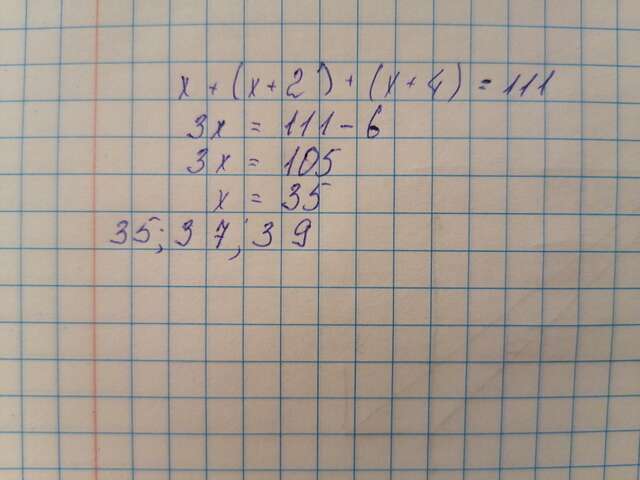 x + (x + 2) + (x + 4) = 111
3x = 111 - 6
3x = 105
x = 35
35; 37; 39